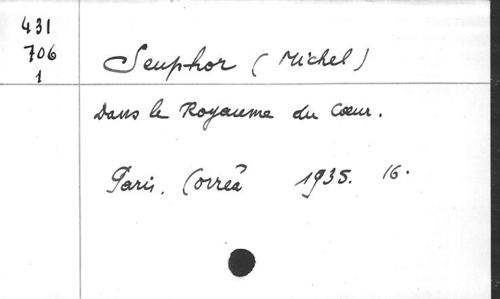 431
706
1
Seuphor (Michel)
Dans le Royaume du Cœur.
Paris. Corrêa 1935. 16.